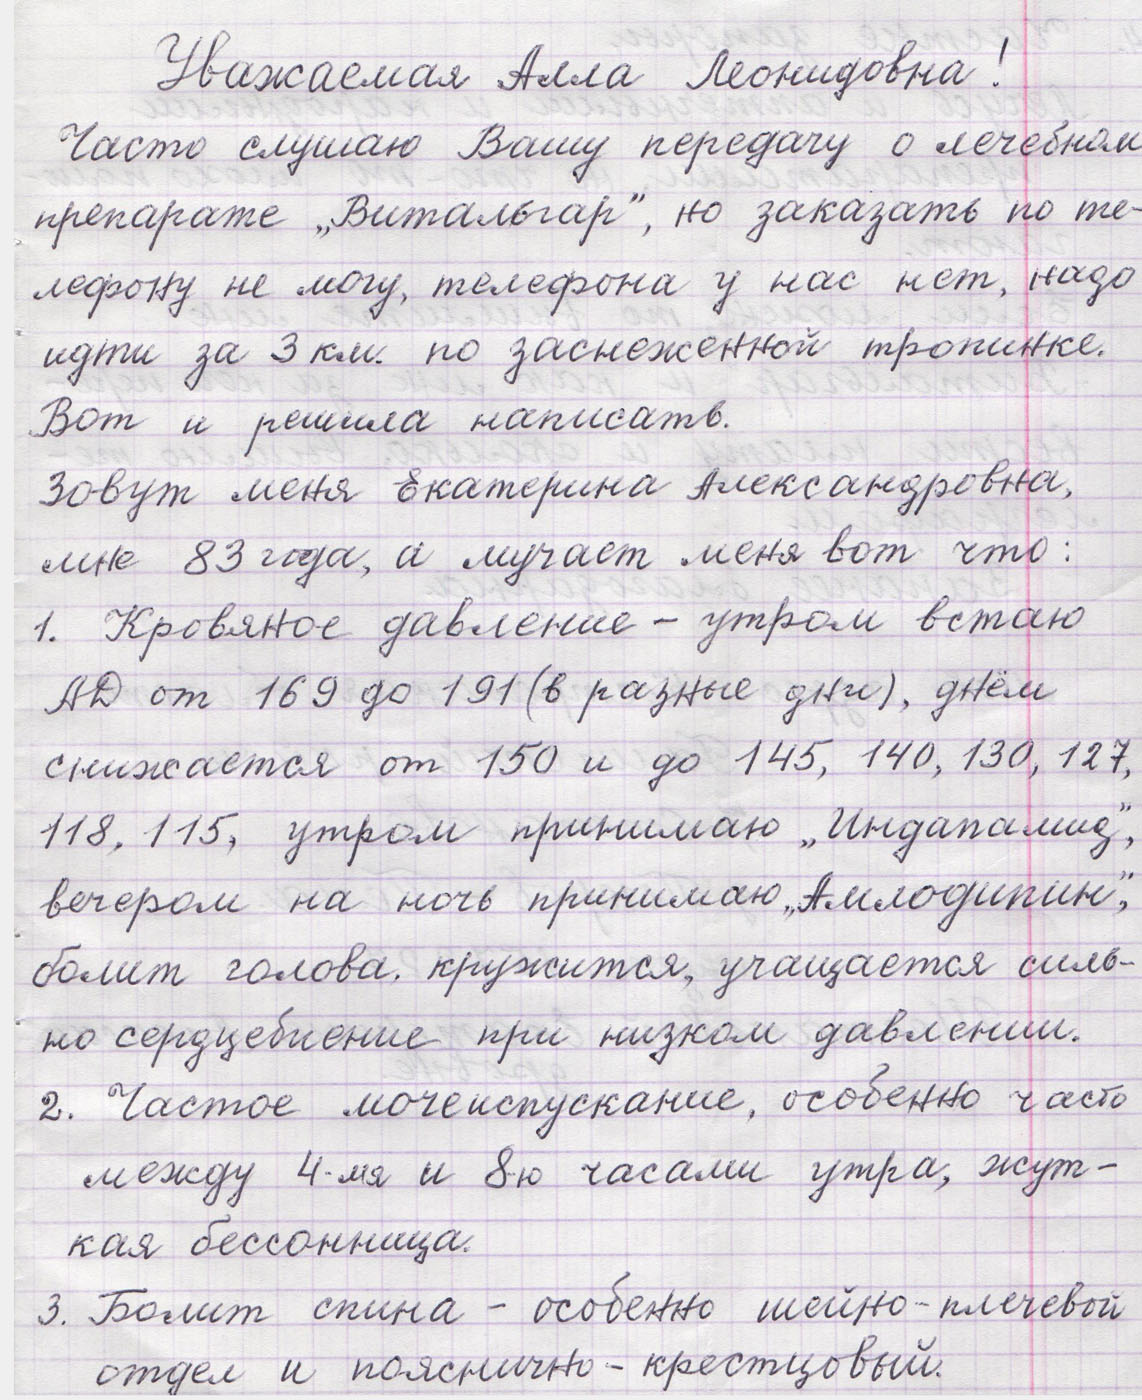 Уважаемая Алла Леонидовна!
Часто слушаю Вашу передачу о лечебном
препарате „Витальгар”, но заказать по те-
лефону не могу, телефона у нас нет, надо
идти за 3 км. по заснеженной тропинке.
Вот и решила написать.
Зовут меня Екатерина Александровна,
мне 83 года, а мучает меня вот что:
1. Кровяное давление – утром встаю
АД от 169 до 191 (в разные дни), днём
снижается от 150 и до 145, 140, 130, 127,
118, 115, утром принимаю „Индапамид”,
вечером на ночь принимаю „Амлодипин”,
болит голова, кружится, учащается силь-
но сердцебиение при низком давлении.
2. Частое мочеиспускание, особенно часто
между 4-мя и 8-ю часами утра, жут-
кая бессонница.
3. Болит спина – особенно шейно-плечевой
отдел и пояснично-крестцовый.